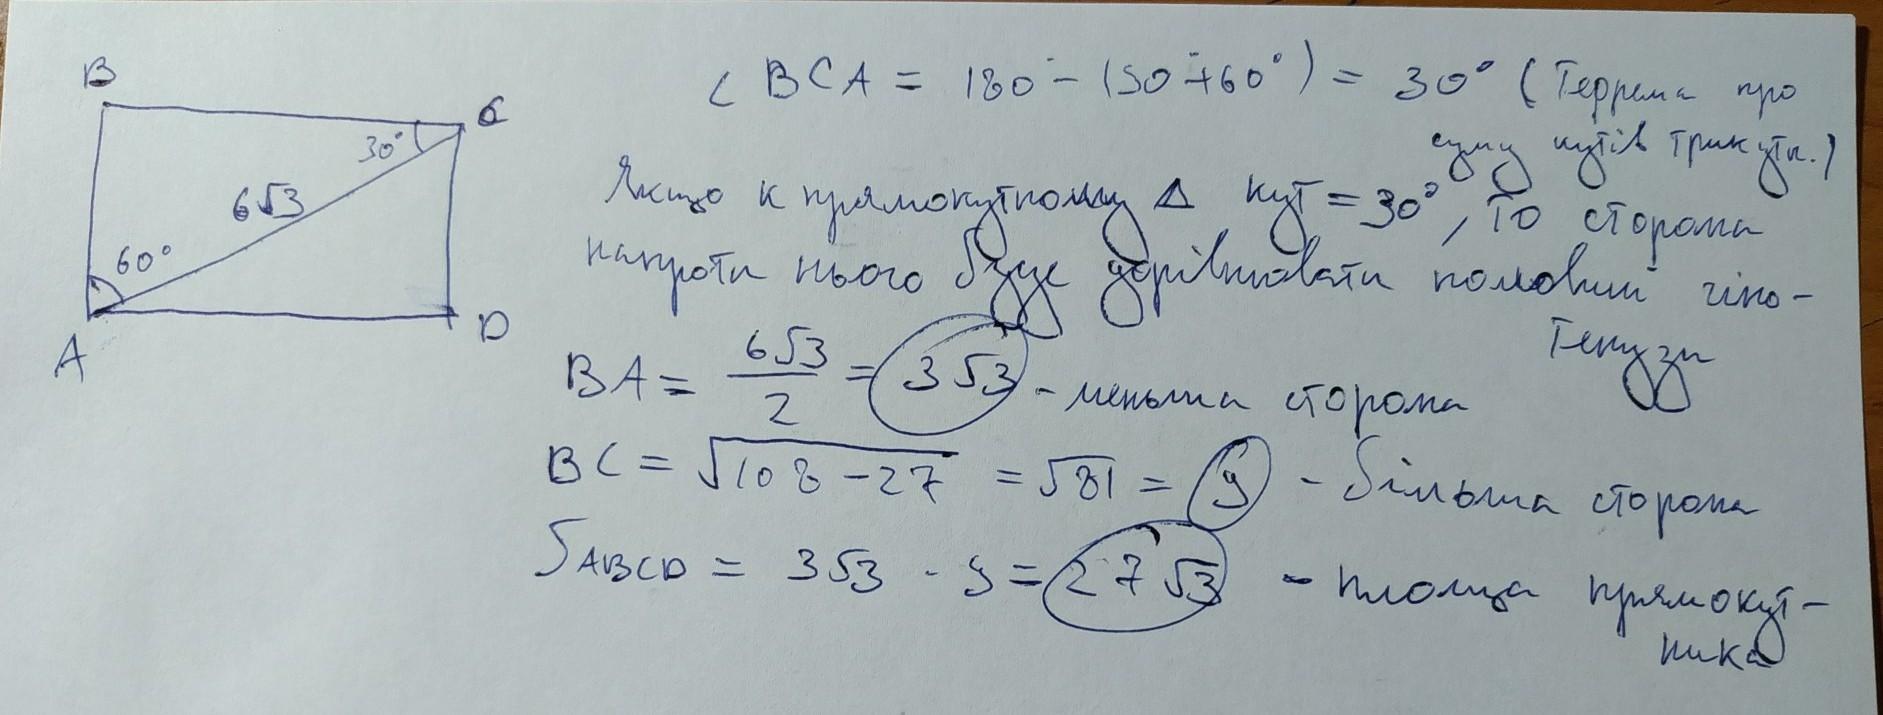 B
C
30°
6√3
60°
A
D
∠ BCA = 180° - (90° + 60°) = 30° (Теорема про
суму кутів трикутн.)
Якщо в прямокутному Δ кут = 30°, то сторона
напроти нього буде дорівнювати половині гіпо-
тенузи
BA = 6√3/2 = 3√3 - меньша сторона
BC = √108-27 = √81 = 9 - більша сторона
SABCD = 3√3 · 9 = 27√3 - площа прямокут-
ника